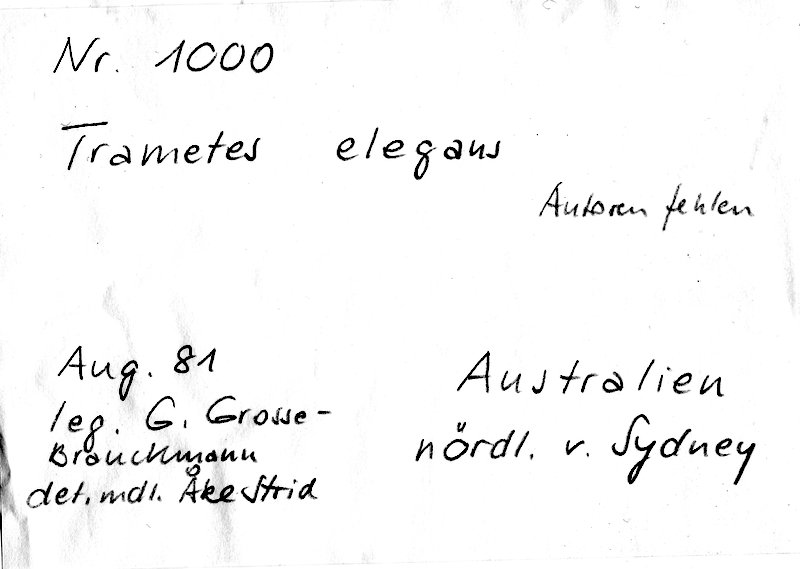 Nr. 1000
Trametes elegans
Autoren fehlen
Aug. 81
leg. G. Grosse-
Brauckmann
det. mdl. Åke Strid
Australien
nördl. v. Sydney